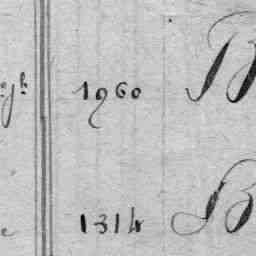 1960 B
1314 B